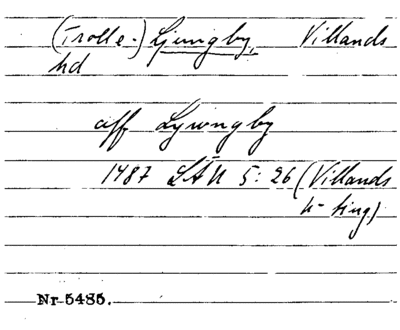 (Trolle-) Ljungby, Villands
hd
aff Lywngby
1487 LÄU 5:26 (Villands
h- ting)
Nr 5485.